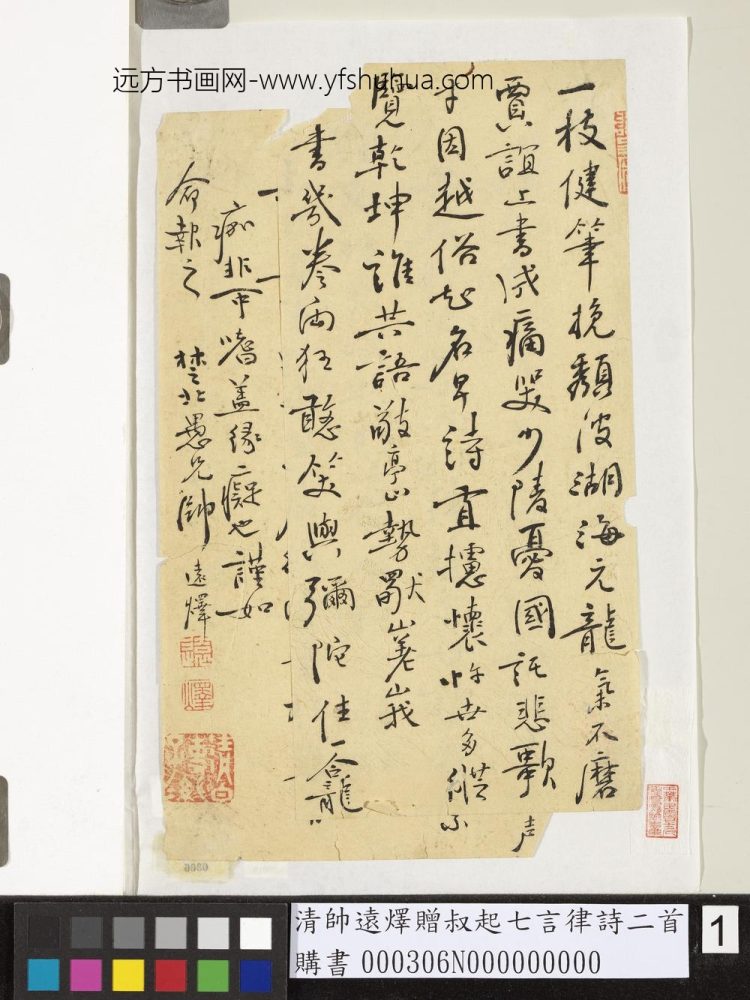 远方书画网-www.yfshuhua.com
一枝健筆挽頹波湖海元龍氣不磨
賈誼上書成痛哭少陵憂國託悲歌
才因越俗起名早詩直攄懷忤世多縱
覽乾坤誰共語敬亭山勢獨嵯峨
書幾卷
狂聽笑與彌陀住一龕
痂非所嗜蓋緣癡也謹如
命報之
楚北愚兄帥遠燡
0660
清帥遠燡贈叔起七言律詩二首
購書 000306N000000000
1